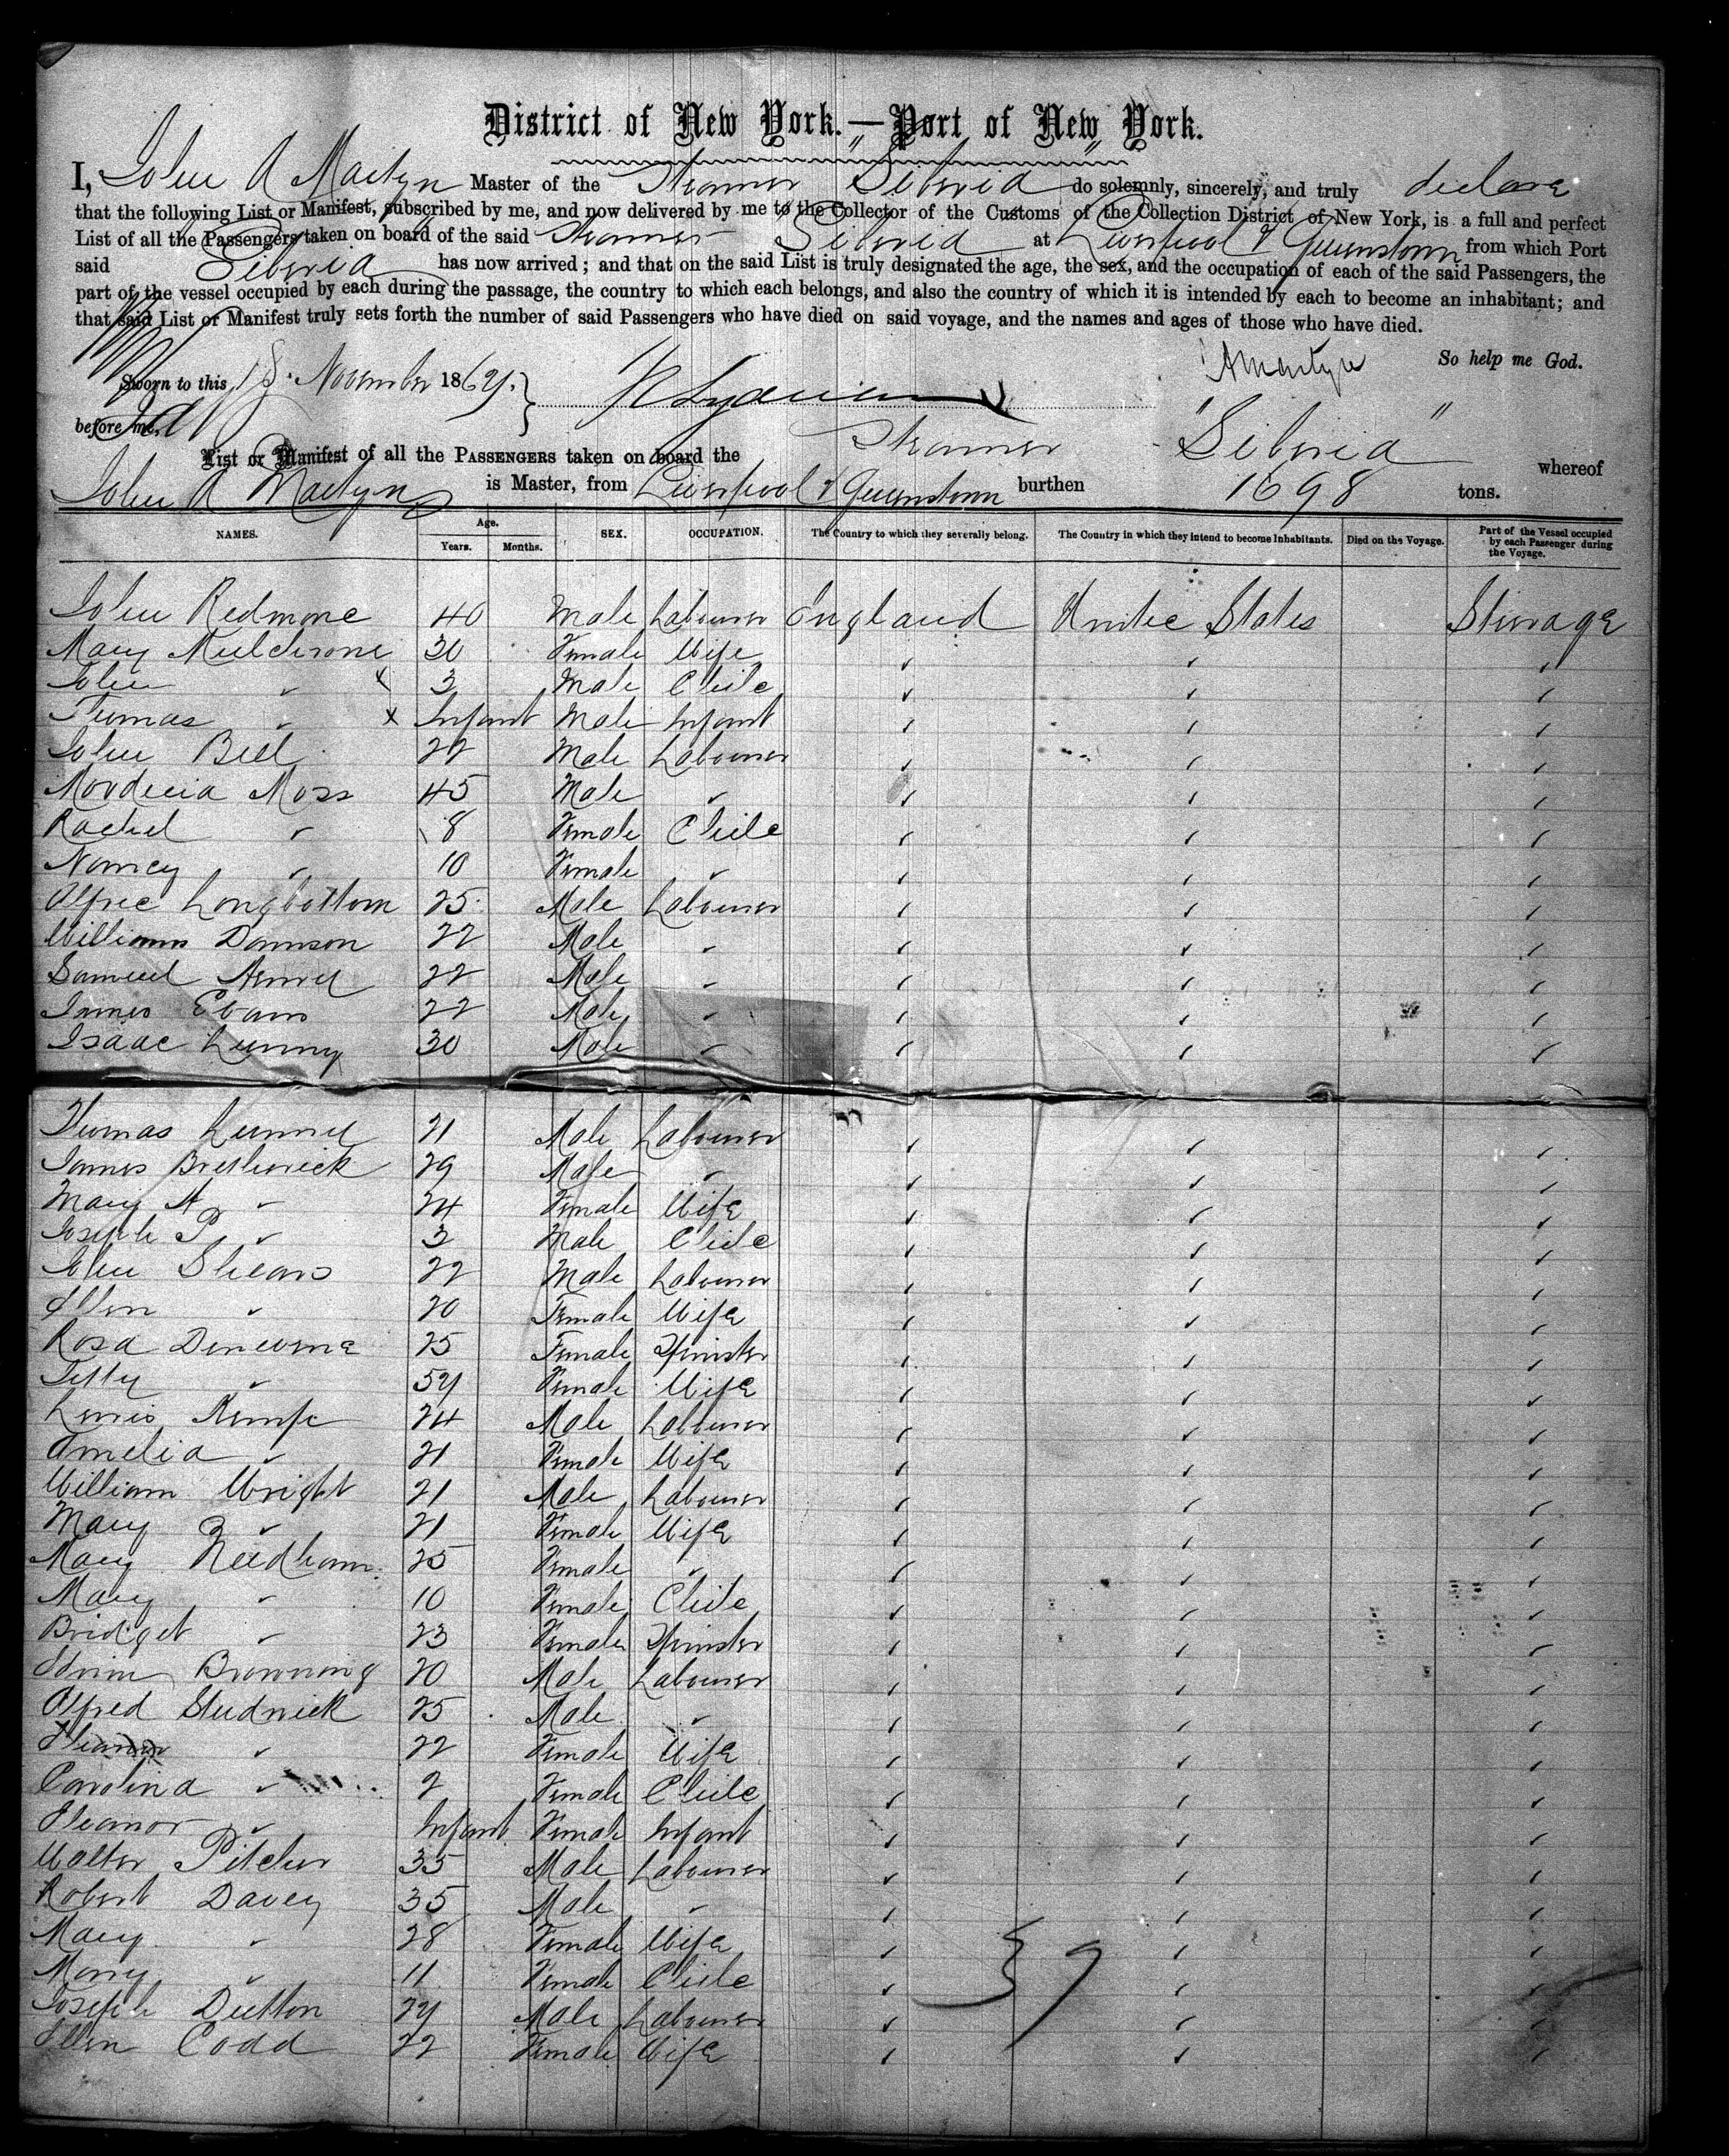 District of New York.—Port of New York.
I, John A Martyn Master of the Steamer "Siberia" do solemnly, sincerely, and truly declare
that the following List or Manifest, subscribed by me, and now delivered by me to the Collector of the Customs of the Collection District of New York, is a full and perfect
List of all the Passengers taken on board of the said Steamer Siberia at Liverpool & Queenstown from which Port
said Siberia has now arrived; and that on the said List is truly designated the age, the sex, and the occupation of each of the said Passengers, the
part of the vessel occupied by each during the passage, the country to which each belongs, and also the country of which it is intended by each to become an inhabitant; and
that said List or Manifest truly sets forth the number of said Passengers who have died on said voyage, and the names and ages of those who have died.
So help me God.
Sworn to this 18. November 1869. JAMartyn
before me,
List or Manifest of all the PASSENGERS taken on board the Steamer "Siberia" whereof
John A Martyn is Master, from Liverpool & Queenstown burthen 1698 tons.
NAMES. Age. Years. Months. SEX. OCCUPATION. The Country to which they severally belong. The Country in which they intend to become Inhabitants. Died on the Voyage. Part of the Vessel occupied by each Passenger during the Voyage.
John Redmone 40 Male Labourer England United States Steerage
Mary 30 Female Wife
John " x 3 Male Child
Thomas " x Infant Male Infant
John Bell 22 Male Labourer
Mordecia Moss 45 Male "
Rachel " 8 Female Child
Nancy " 10 Female "
Alfred Longbottom 25 Male Labourer
William Dawson 22 Male "
Samuel 22 Male "
James Evans 22 Male "
Isaac Lunny 30 Male "
Thomas 21 Male Labourer
James Bretherick 29 Male "
Mary A " 24 Female Wife
Joseph P " 3 Male Child
John Shears 22 Male Labourer
Ellen " 20 Female Wife
Rosa 25 Female Spinster
" 54 Female Wife
Lewis Kempe 24 Male Labourer
Amelia " 21 Female Wife
William Wright 21 Male Labourer
Mary " 21 Female Wife
Mary Needham 25 Female "
Mary " 10 Female Child
Bridget " 23 Female Spinster
Edwin Browning 20 Male Labourer
Alfred Studwick 25 Male "
Eleanor " 22 Female Wife
Carolina " 2 Female Child
Eleanor " Infant Female Infant
Walter Pitcher 35 Male Labourer
Robert Davey 35 Male "
Mary " 28 Female Wife
Mary " 11 Female Child
Joseph Dutton 24 Male Labourer
Ellen Codd 22 Female Wife
39